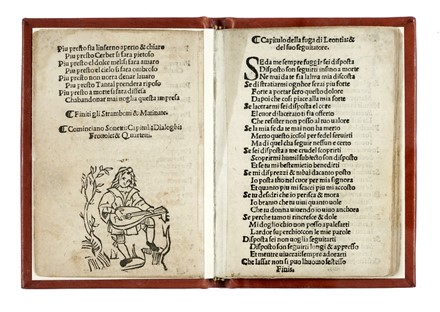 Piu presto fia linferno aperto & chiaro
Piu presto Cerber si fara pietoso
Piu presto el dolce mele si fara amaro
Piu presto el cielo si fara ombroso
Piu presto non uorra denar lauaro
Piu presto Tantal prendera riposo
Piu presto a morte si fara difesa
Chabandonar mai uoglia questa impresa
¶ Finiti gli Stramboti & Matinate.
¶ Cominciano Sonetti Capituli Dialoghi
Frottole & Quarteni.
¶ Capitulo della fuga di Leontia &
del suo seguitatore.
SE da me sempre fuggir sei disposta
Disposto son seguirti insino a morte
Ne mai da te fia lalma mia discosta
Se di stratiarmi ognhor serai piu forte
Forte a portar sero questo dolore
Da poi che cosi piace alla mia sorte
Se lacerarmi sei disposta el core
El cor dilacerato ti fia offerto
Che resister non posso al tuo ualore
Se la mia feda te mai non ha merto
Merto questo icosol per fedel seruirti
Ma di quel cha seguir nessun e certo
Se sei disposta a me crudel scoprirti
Scoprirmi humil subiecto son disposto
Et se tu mi bestemi e to benedirti
Se mi disprezi & mhai dacanto posto
Io posta tho nel cuor per mia signora
Et quanto piu mi scacci piu mi accosto
Se tu desidri che io perisca & mora
Io bramo che tu uiui quanto uole
Che tu donna uiuendo io uiuo anchora
Se perche tamo ti rincresce & dole
Mi doglio chio non posso palesarti
Lardor superchio con le mie parole
Disposta sei non uogli seguitarti
Disposto son seguirti longi & appresso
Et mentre uiuero sempre adorarti
Che lassar non si puo lhuomo se stesso
Finis.